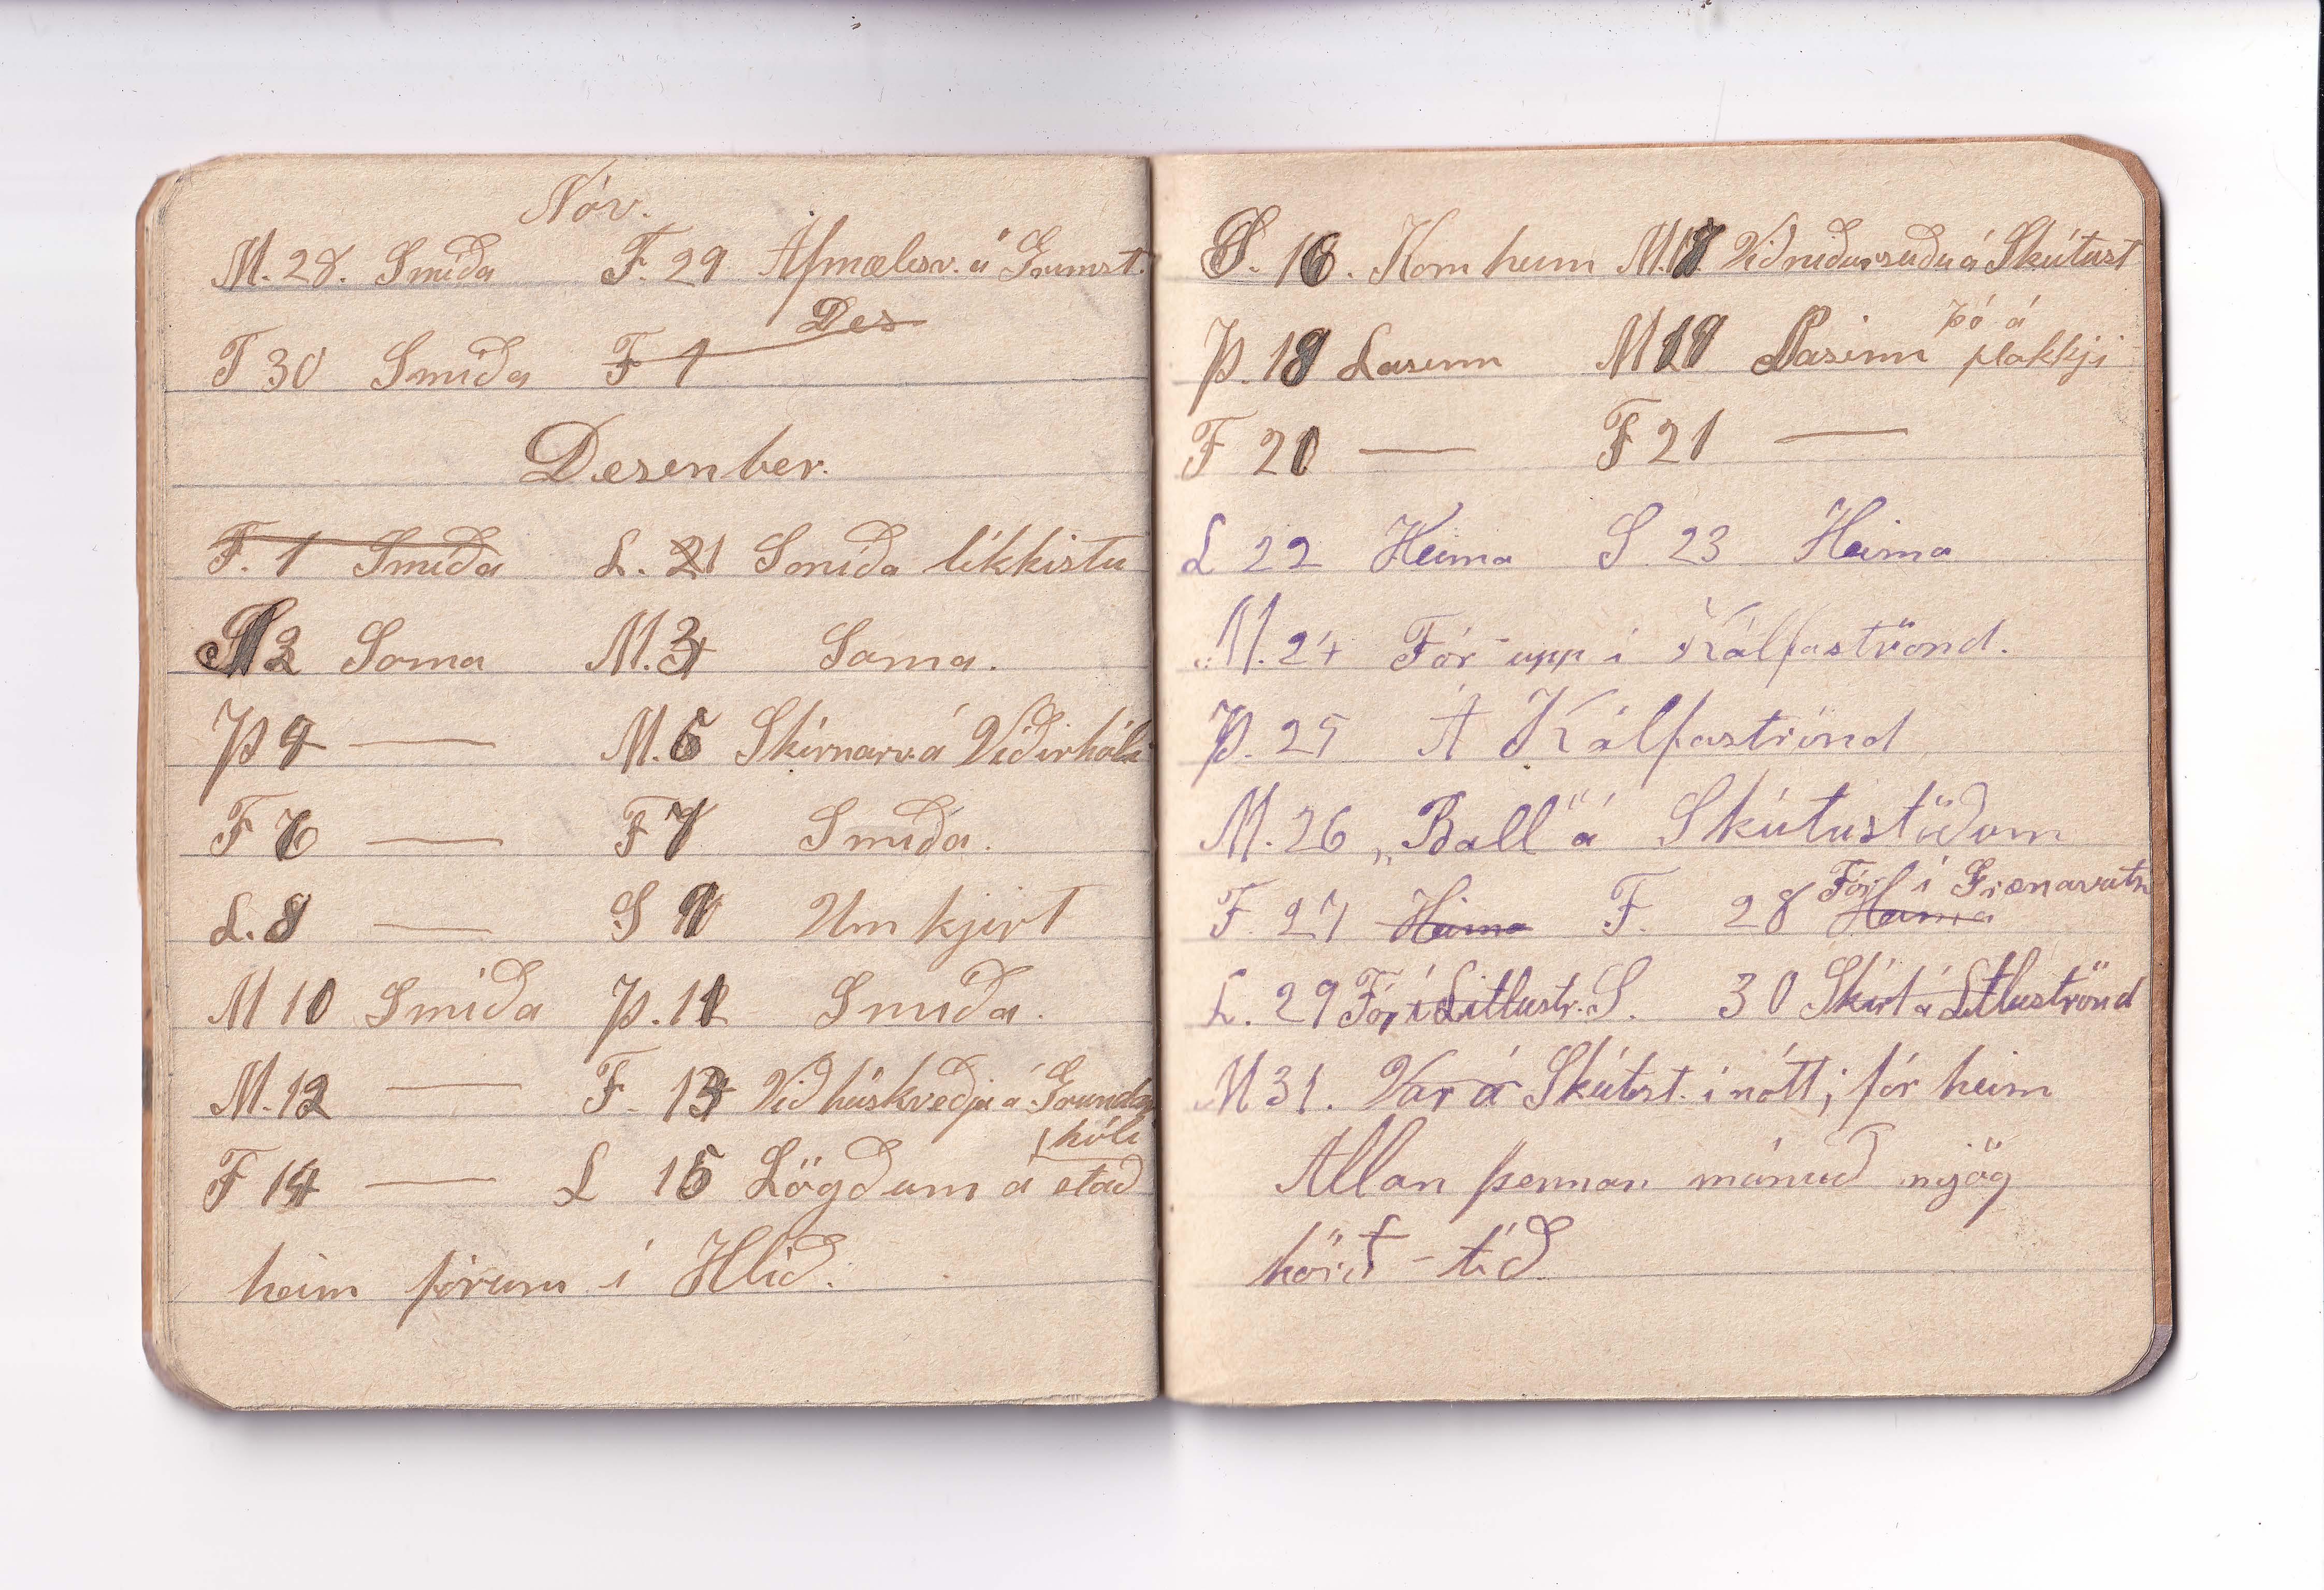 Nóv.
M. 28. Smíða F. 29 Afmælisv. á Grímst.
F 30 Smíða F 1 Des
Desenber.
F. 1 Smíða L. 1 Smíða líkkistu
S 2 Sama M. 3 Sama.
Þ 4 — M. 5 Skírnarv. á Víðirhóli
F 6 — F 7 Smíða.
L. 8 — S 9 Um kjirt
M 10 Smíða Þ. 11 Smíða.
M. 12 — F. 13 Við húskveðju á Grundar
hóli
F 14 — L 15 Lögðum á stað
heim fórum í Hlíð.
S. 16. Kom heim M. 17 Við niðursuðu á Skútust
Þ. 18 Lasinn M 19 Lasinn þó á
flakkji
F 20 — F 21 —
L 22 Heima S 23 Heima
M. 24 Fór upp í Kálfaströnd.
Þ. 25 Á Kálfaströnd
M. 26 „Ball" á Skútustöðum
F. 27 Heima F. 28 Heima Fór í Grænavatn
L. 29 Fór í Litlustr. S. 30 Skírt á Litluströnd
M 31. Var á Skútust. í nótt; fór heim
Allan þennan mánuð mjög
hörð - tíð